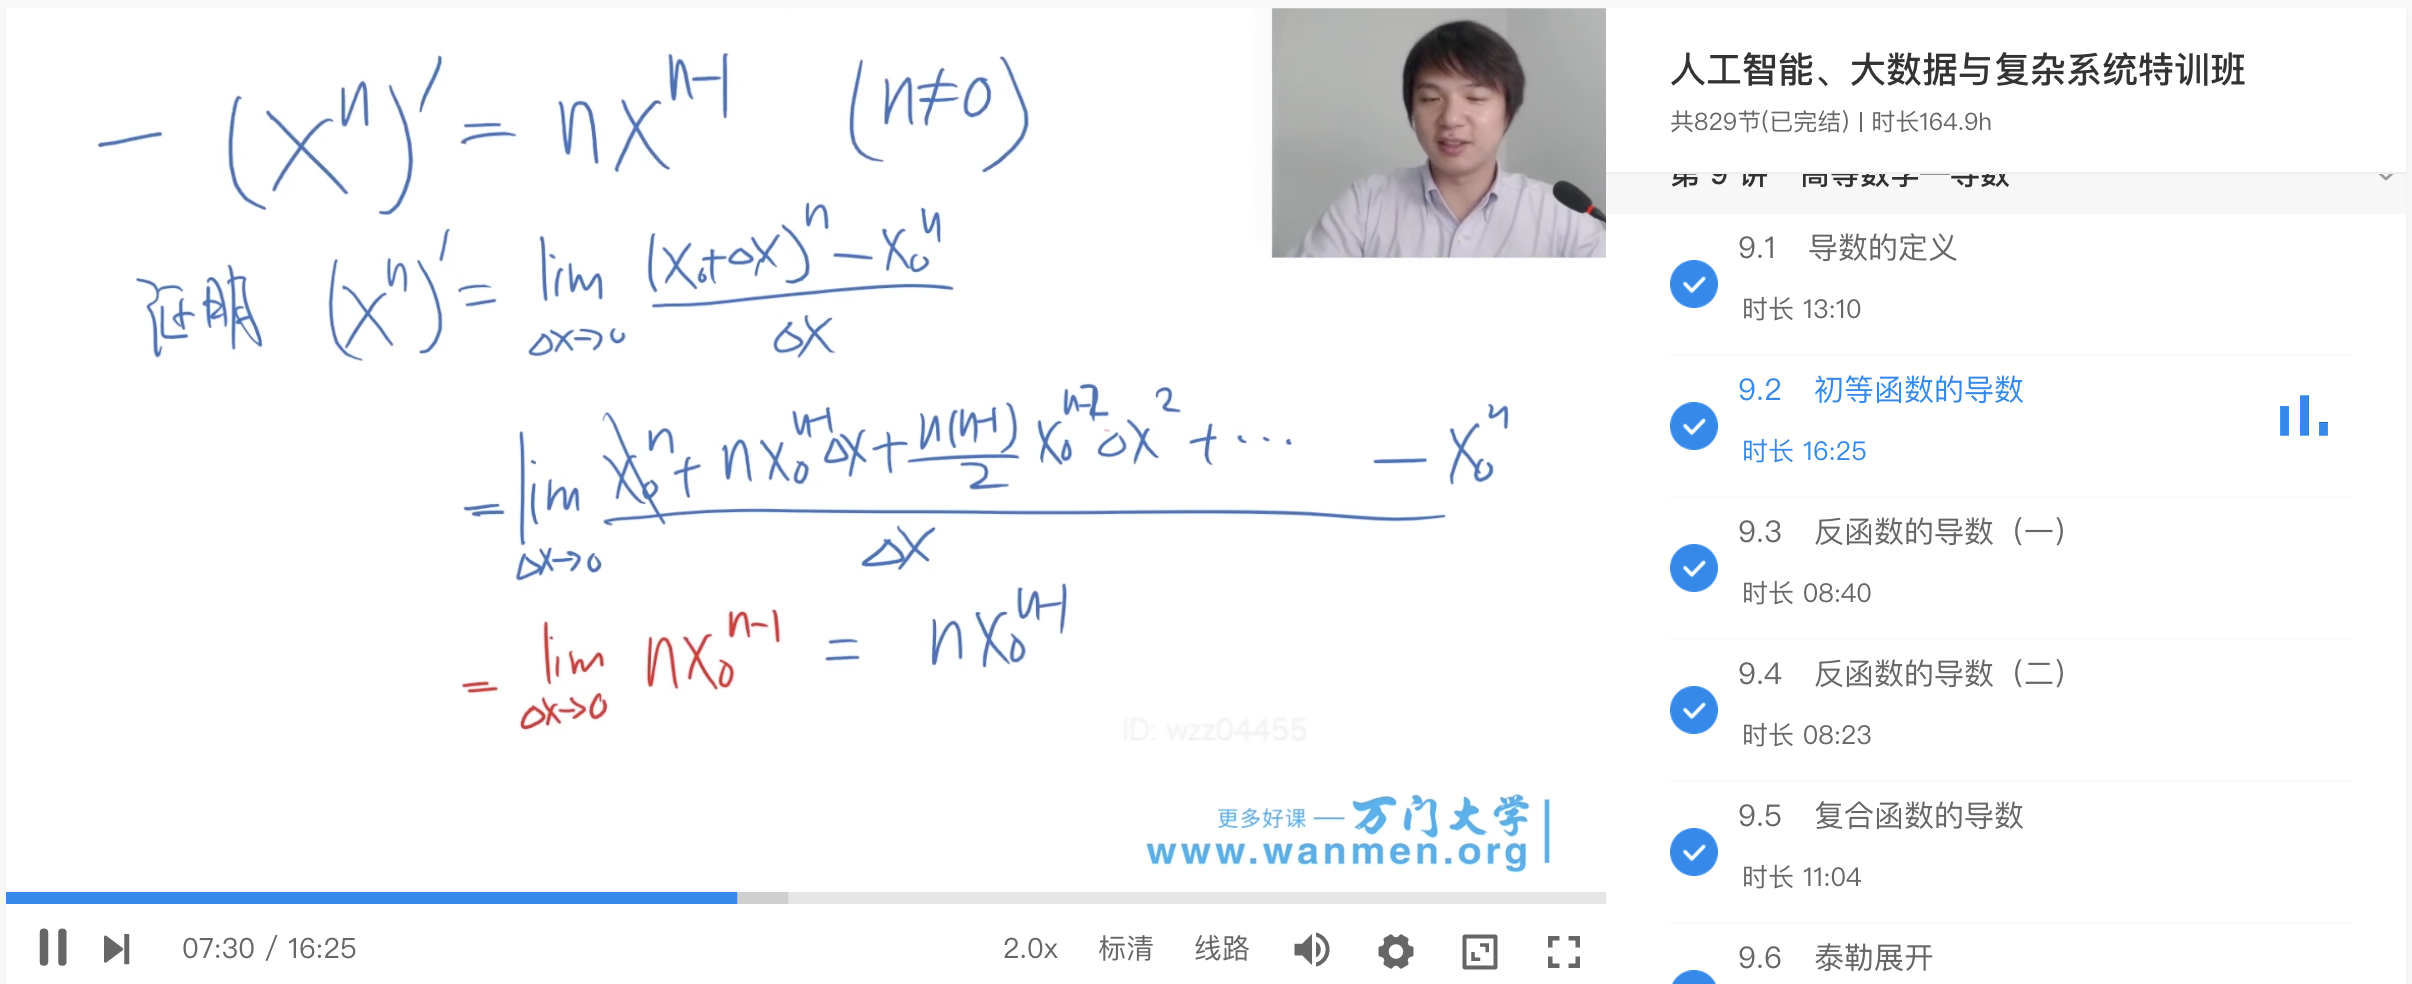 — (xⁿ)′ = nxⁿ⁻¹ (n≠0)
证明 (xⁿ)′ = lim Δx→0 ((x₀+Δx)ⁿ − x₀ⁿ) / Δx
= lim Δx→0 (x₀ⁿ + nx₀ⁿ⁻¹Δx + n(n-1)/2 x₀ⁿ⁻²Δx² + ⋯ − x₀ⁿ) / Δx
= lim Δx→0 nx₀ⁿ⁻¹ = nx₀ⁿ⁻¹
ID: wzz04455
更多好课 — 万门大学
www.wanmen.org
07:30 / 16:25
2.0x 标清 线路
人工智能、大数据与复杂系统特训班
共829节(已完结) | 时长164.9h
第 9 讲 高等数学—导数
9.1 导数的定义
时长 13:10
9.2 初等函数的导数
时长 16:25
9.3 反函数的导数（一）
时长 08:40
9.4 反函数的导数（二）
时长 08:23
9.5 复合函数的导数
时长 11:04
9.6 泰勒展开